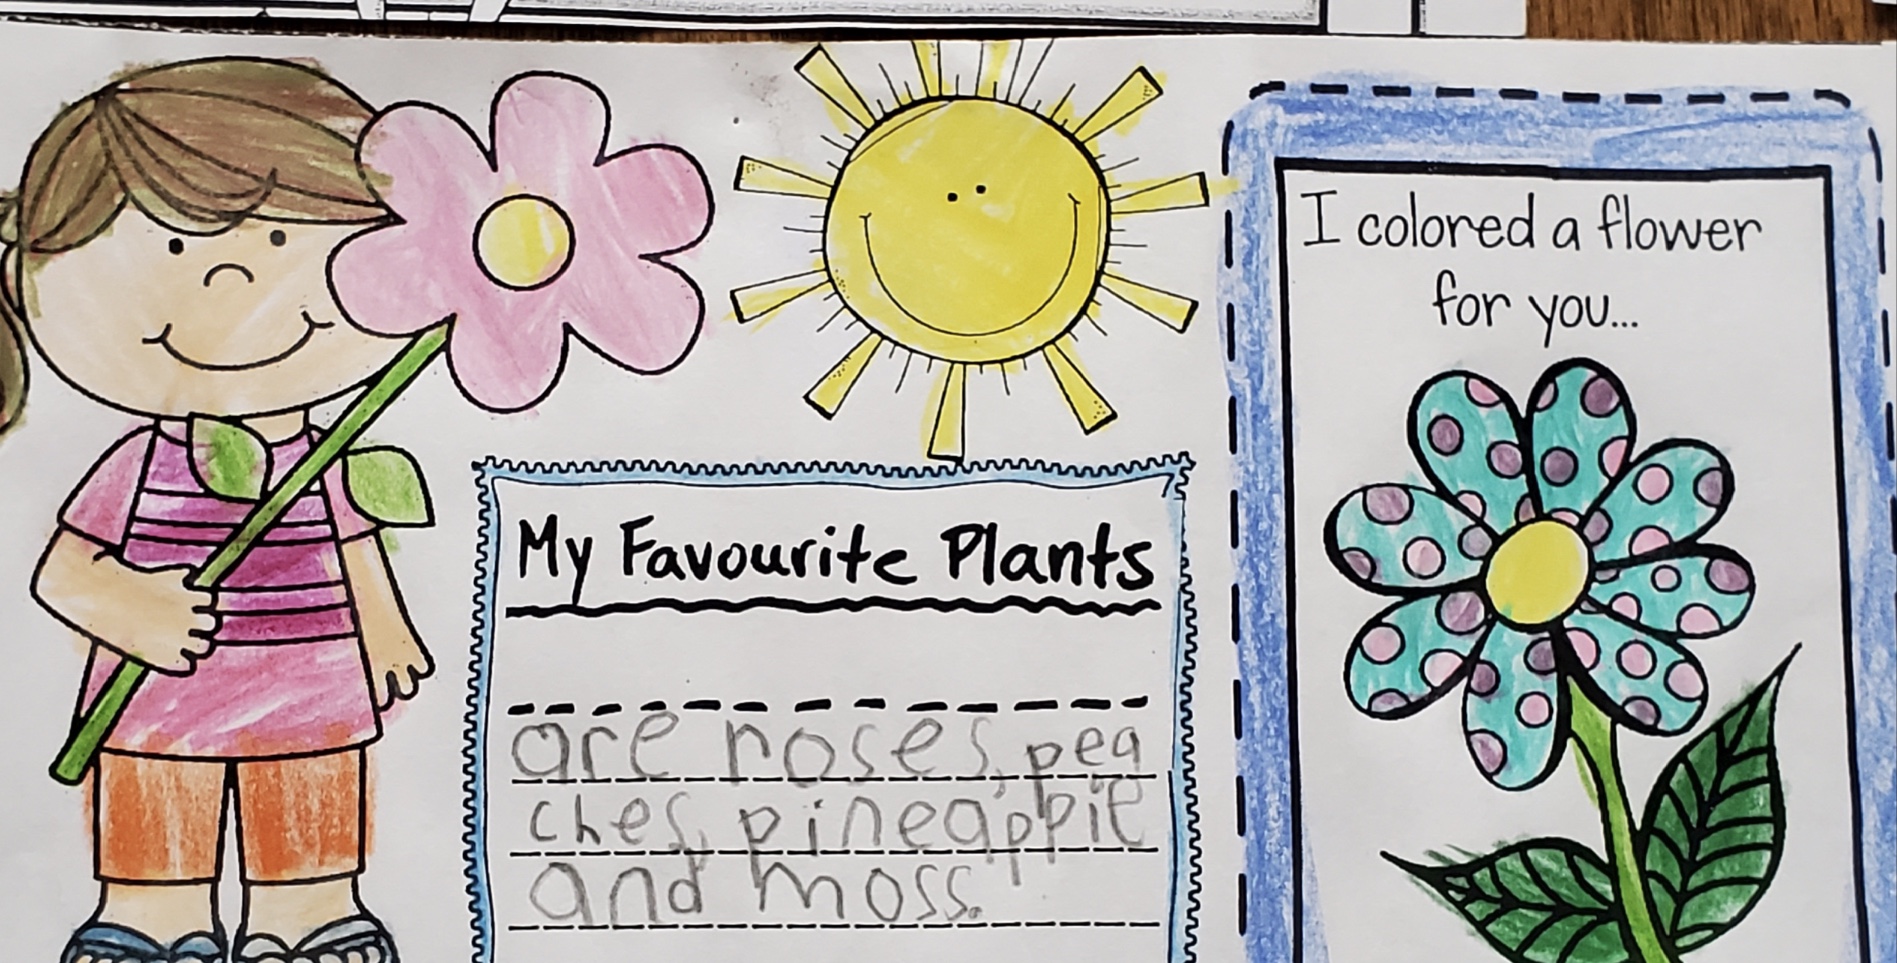 My Favourite Plants
are roses, pea
ches, pineapple
and moss.
I colored a flower
for you...